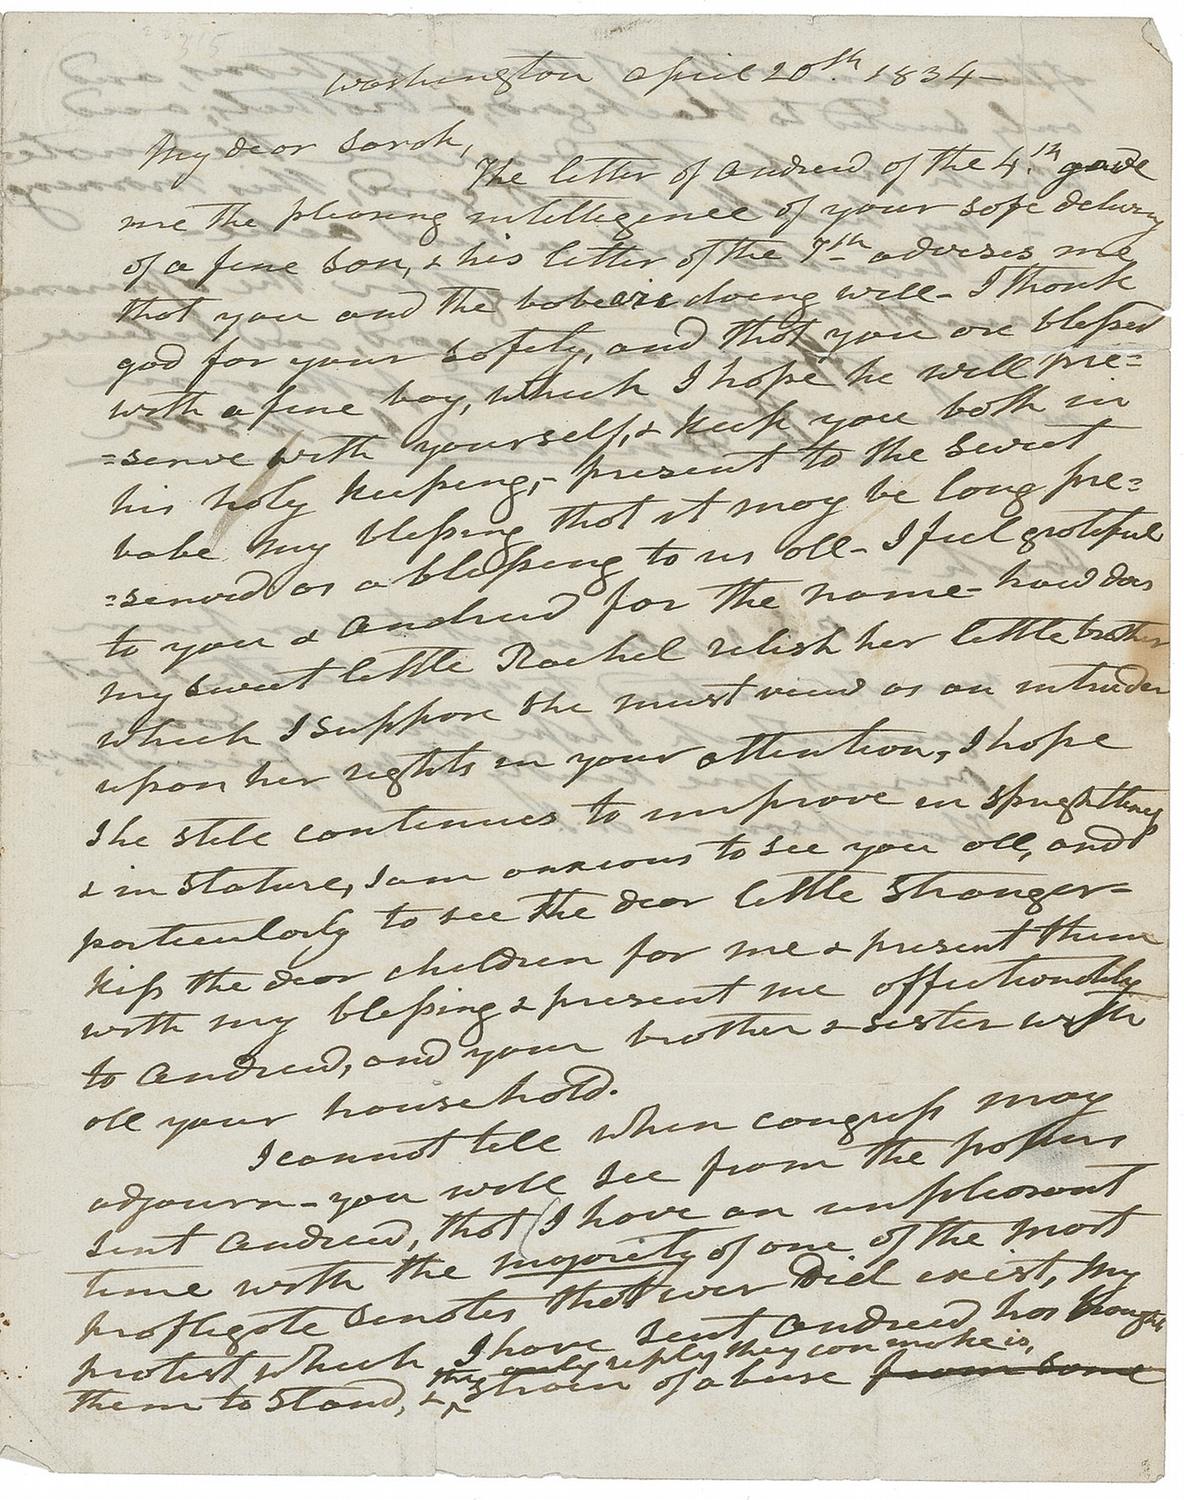 Washington April 20th. 1834-
My dear Sarah,
The letter of Andrew of the 4.th gave
me the pleasing intelligence of your safe delivery
of a fine Son, & his letter of the 7th advises me
that you and the babe are doing well- I thank
god for your safety, and that you are blessed
with a fine boy, which I hope he will pre=
=serve with yourself, & keep you both in
his holy keeping,- present to the sweet
babe my blessing that it may be long pre=
=served as a blessing to us all- I feel grateful
to you & Andrew for the name- how does
my sweet little Rachel relish her little brother
which I suppose she must view as an intruder
upon her rights in your attention, I hope
she still continues to improve in
& in Stature, I am anxious to see you all, and
particularly to see the dear little Stranger-
kiss the dear children for me & present them
with my blessing & present me affectionately
to Andrew, and your brother & sister with
all your household.
I cannot tell when congress may
adjourn- you will see from the papers
sent Andrew, that (I have an unpleasant
time with the majority of one of the most
profligate Senates that ever did exist, my
protest which I have sent Andrew has brought
the only reply they can make is,
them to Stand, & ^ Strain of abuse from some